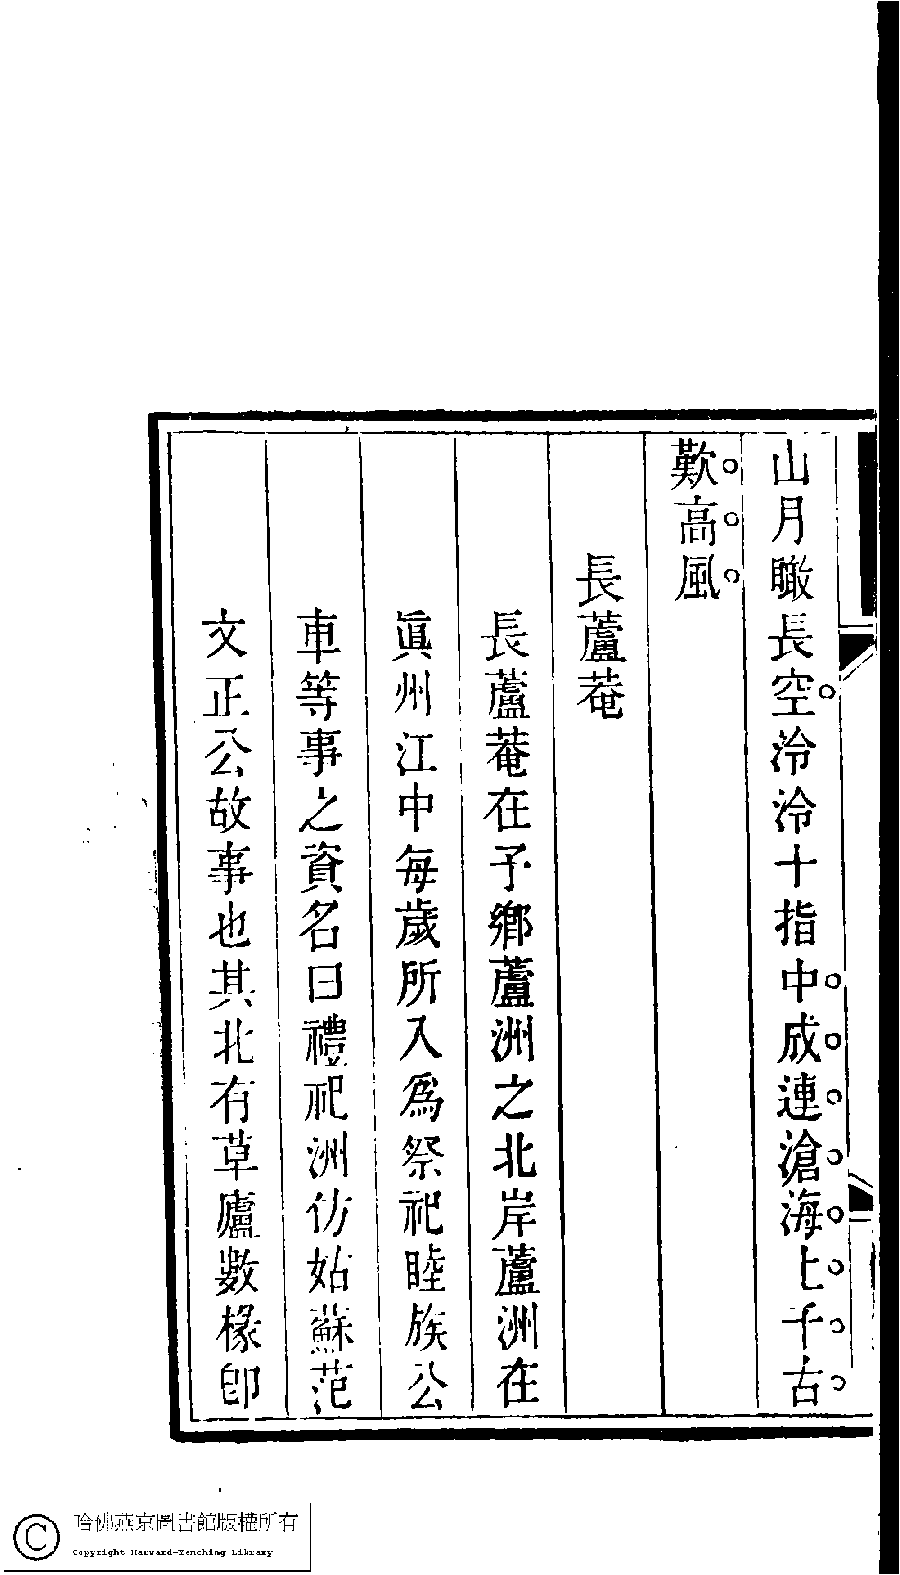 山月瞰長空泠泠十指中成連滄海上千古
歎高風
長蘆菴
長蘆菴在予鄉蘆洲之北岸蘆洲在
眞州江中每歲所入爲祭祀睦族公
車等事之資名曰禮祀洲仿姑蘇范
文正公故事也其北有草廬數椽卽
哈佛燕京圖書館版權所有
Copyright Harvard-Yenching Library